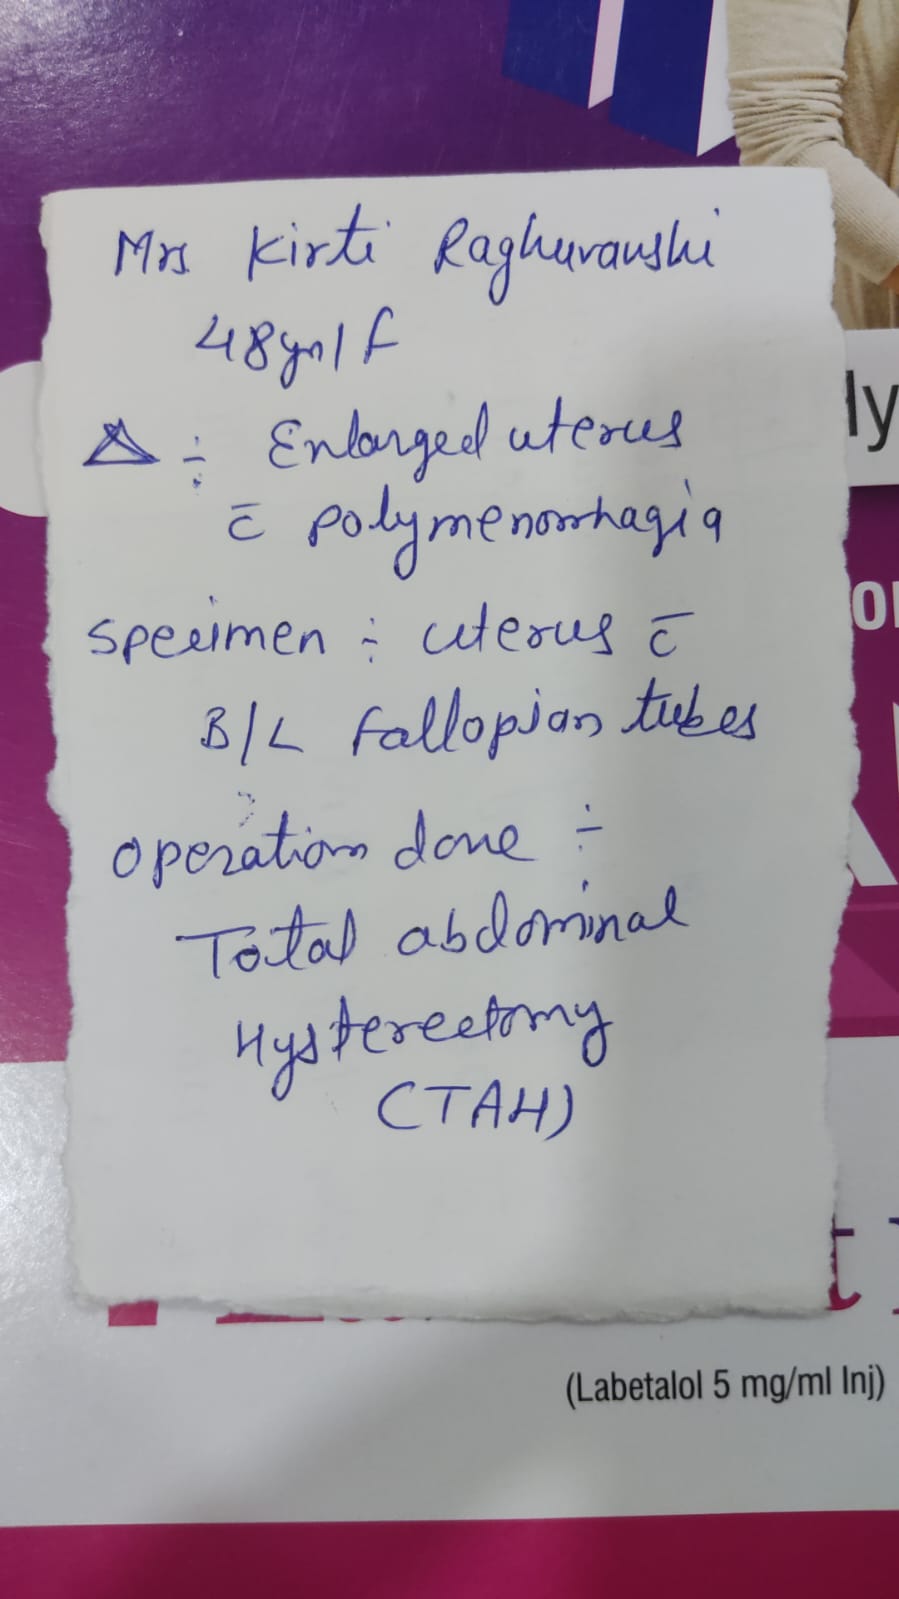 Mrs Kirti Raghuvanshi
48yr/F
Δ ÷ Enlarged uterus
c̄ polymenorrhagia
Specimen ÷ uterus c̄
B/L Fallopian tubes
Operation done ÷
Total abdominal
Hysterectomy
(TAH)
ly
(Labetalol 5 mg/ml Inj)